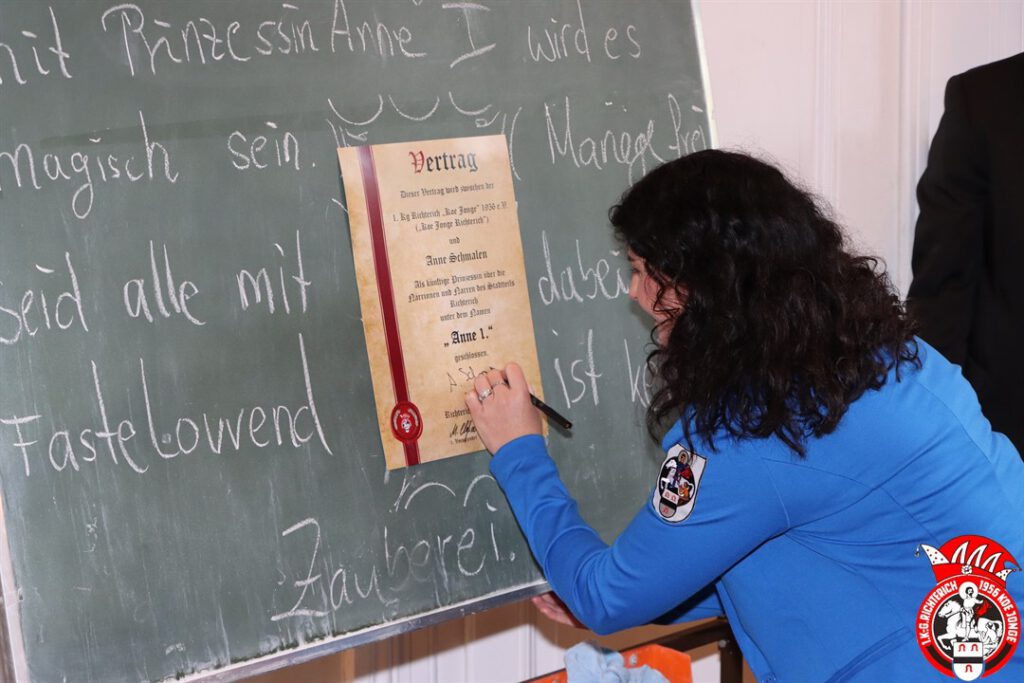 mit Prinzessin Anne I wird es
magisch sein. Manege frei
Seid alle mit dabei
Fastelovvend ist
Zauberei.
Vertrag
Dieser Vertrag wird zwischen der
1. Kg Richterich „Koe Jonge" 1956 e.V.
(„Koe Jonge Richterich")
und
Anne Schmalen
Als künftige Prinzessin über die
Närrinnen und Narren des Stadtteils
Richterich
unter dem Namen
„Anne 1."
geschlossen.
1.K.G. RICHTERICH 1956 KOE JONGE